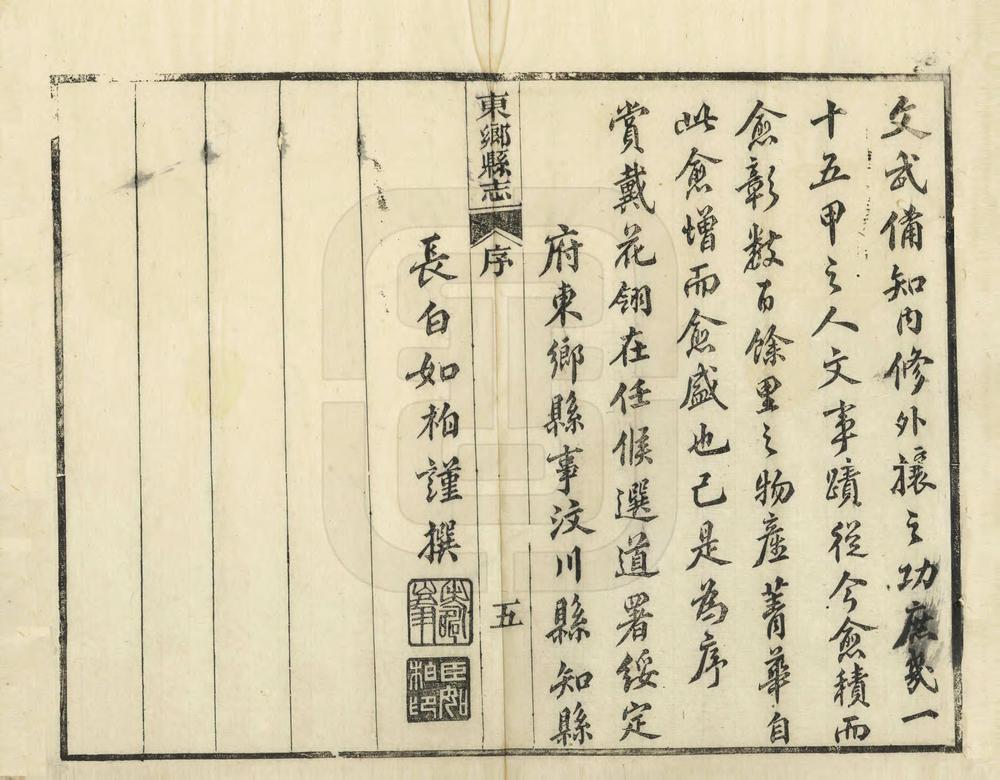 文武備知內修外攘之功庶幾一
十五甲之人文事蹟從今愈積而
愈彰數百餘里之物產菁華自
此愈增而愈盛也已是為序
賞戴花翎在任候選道署綏定
府東鄉縣事汶川縣知縣
東鄉縣志
序
五
長白如柏謹撰
臣如柏印